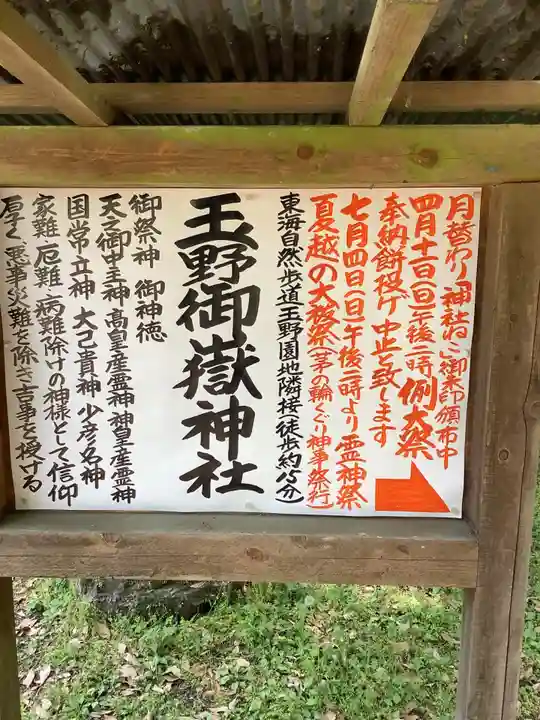 月替わり「神社ねこ」御朱印頒布中
四月十一日(日)午後一時 例大祭
奉納餅投げ 中止と致します
七月四日(日)午後一時より霊神祭
夏越の大祓祭(茅の輪くぐり神事祭行)
東海自然歩道玉野園地隣接(徒歩約15分)
玉野御嶽神社
御祭神 御神徳
天之御中主神 高皇産霊神 神皇産霊神
国常立神 大己貴神 少彦名神
家難、厄難、病難除けの神様として信仰
厚く、悪事災難を除き吉事を授ける